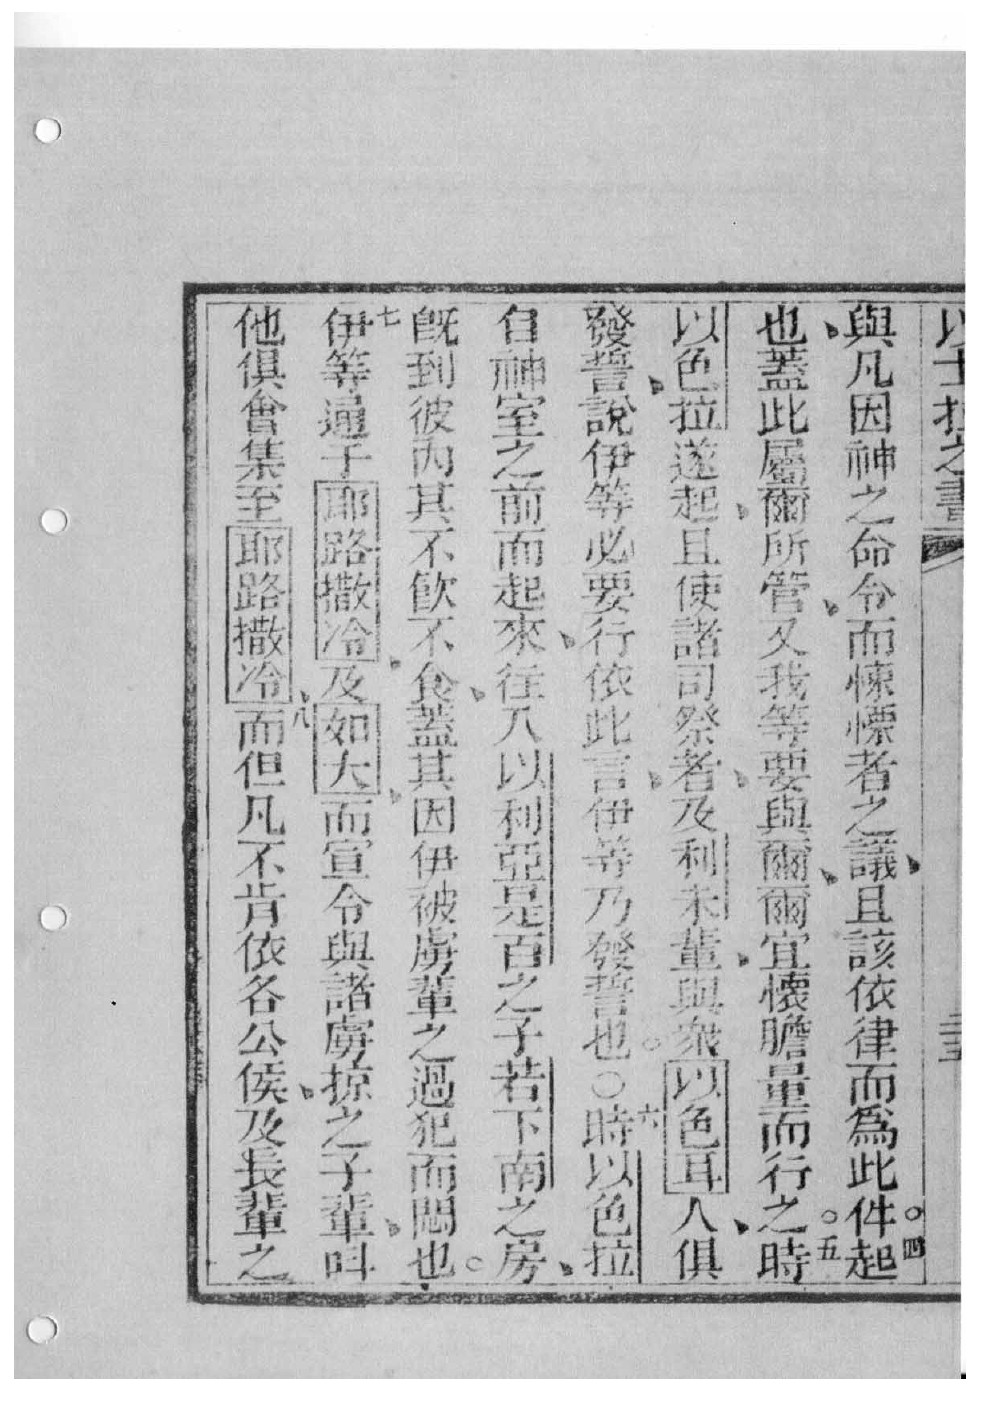 以士拉之書 二十五
與凡因神之命令而悚慄者之議且該依律而為此件起
也蓋此屬爾所管又我等要與爾爾宜懷膽量而行之時
以色拉遂起且使諸司祭者及利未輩與眾以色耳人俱
發誓說伊等必要行依此言伊等乃發誓也○時以色拉
自神室之前而起來往入以利亞是百之子若下南之房
既到彼內其不飲不食蓋其因伊被虜輩之過犯而悶也
伊等通于耶路撒冷及如大而宣令與諸虜掠之子輩叫
他俱會集至耶路撒冷而但凡不肯依各公侯及長輩之
四
五
六
七
八